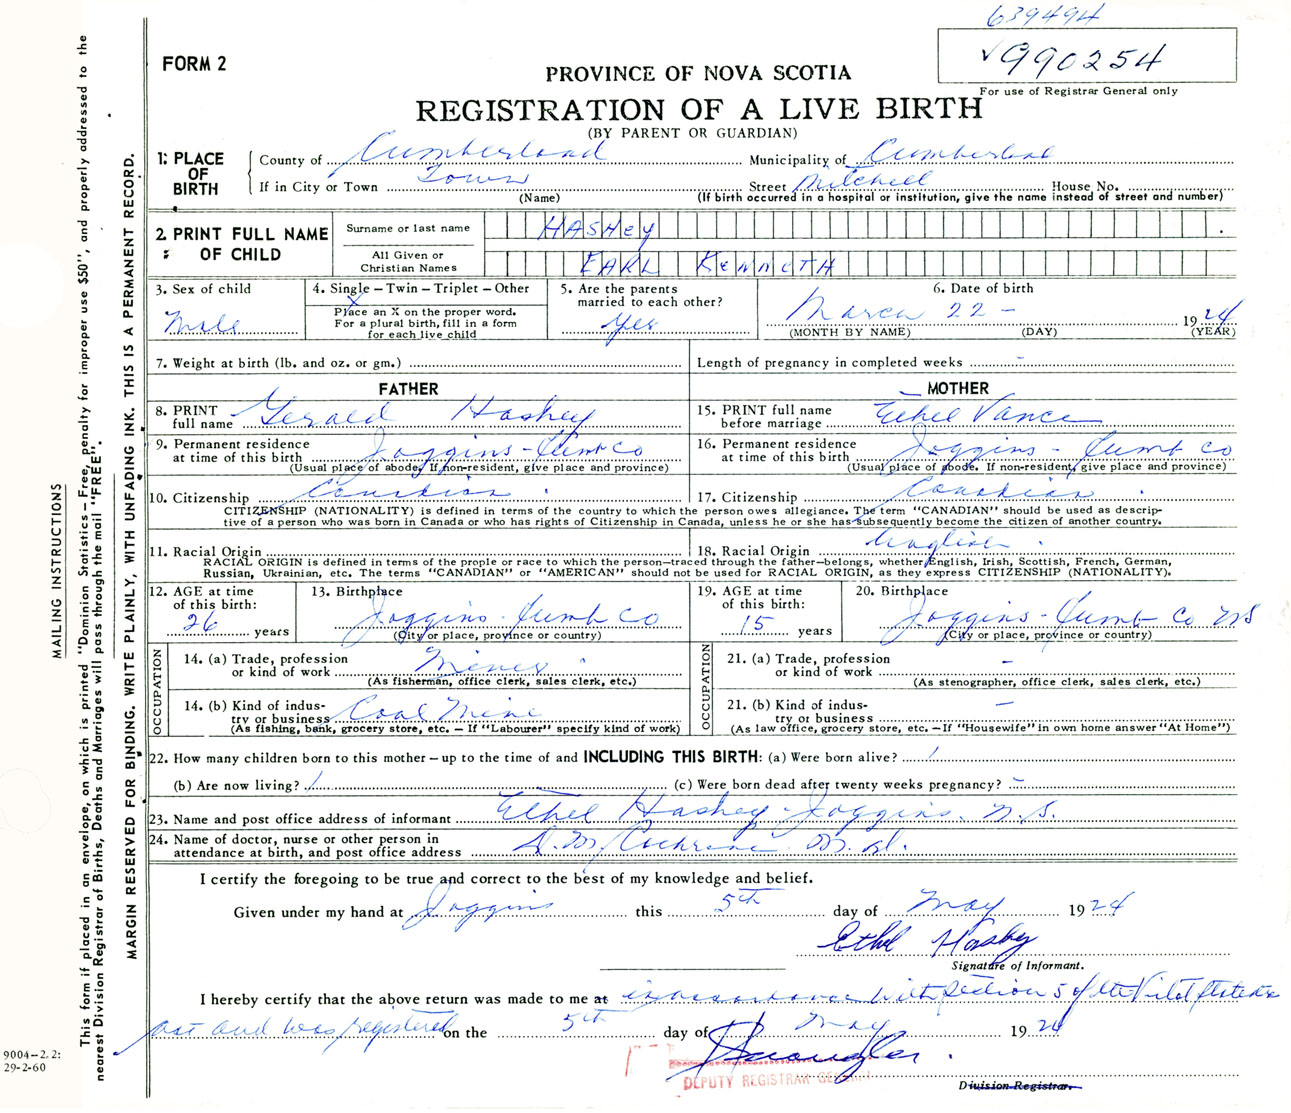 639494
FORM 2
√990254
PROVINCE OF NOVA SCOTIA
For use of Registrar General only
REGISTRATION OF A LIVE BIRTH
(BY PARENT OR GUARDIAN)
1: PLACE OF BIRTH
County of Cumberland Municipality of Cumberland
If in City or Town Town Street Mitchell House No.
(Name) (If birth occurred in a hospital or institution, give the name instead of street and number)
2. PRINT FULL NAME OF CHILD
Surname or last name HASHEY
All Given or Christian Names EARL KENNETH
3. Sex of child Male
4. Single – Twin – Triplet – Other
X
Place an X on the proper word.
For a plural birth, fill in a form
for each live child
5. Are the parents
married to each other? Yes
6. Date of birth
March 22 - 1924
(MONTH BY NAME) (DAY) (YEAR)
7. Weight at birth (lb. and oz. or gm.) Length of pregnancy in completed weeks -
FATHER MOTHER
8. PRINT full name Gerald Hashey
15. PRINT full name before marriage Ethel Vance
9. Permanent residence at time of this birth Joggins - Cumb Co
(Usual place of abode. If non-resident, give place and province)
16. Permanent residence at time of this birth Joggins - Cumb Co
(Usual place of abode. If non-resident, give place and province)
10. Citizenship Canadian
17. Citizenship Canadian
CITIZENSHIP (NATIONALITY) is defined in terms of the country to which the person owes allegiance. The term "CANADIAN" should be used as descrip-
tive of a person who was born in Canada or who has rights of Citizenship in Canada, unless he or she has subsequently become the citizen of another country.
11. Racial Origin
18. Racial Origin English
RACIAL ORIGIN is defined in terms of the prople or race to which the person—traced through the father—belongs, whether English, Irish, Scottish, French, German,
Russian, Ukrainian, etc. The terms "CANADIAN" or "AMERICAN" should not be used for RACIAL ORIGIN, as they express CITIZENSHIP (NATIONALITY).
12. AGE at time of this birth: 26 years
13. Birthplace Joggins - Cumb Co
(City or place, province or country)
19. AGE at time of this birth: 15 years
20. Birthplace Joggins - Cumb Co NS
(City or place, province or country)
OCCUPATION
14. (a) Trade, profession or kind of work Miner
(As fisherman, office clerk, sales clerk, etc.)
14. (b) Kind of indus-
try or business Coal Mine
(As fishing, bank, grocery store, etc. – If "Labourer" specify kind of work)
OCCUPATION
21. (a) Trade, profession or kind of work -
(As stenographer, office clerk, sales clerk, etc.)
21. (b) Kind of indus-
try or business -
(As law office, grocery store, etc. – If "Housewife" in own home answer "At Home")
22. How many children born to this mother – up to the time of and INCLUDING THIS BIRTH: (a) Were born alive? 1
(b) Are now living? 1 (c) Were born dead after twenty weeks pregnancy? -
23. Name and post office address of informant Ethel Hashey - Joggins. N.S.
24. Name of doctor, nurse or other person in
attendance at birth, and post office address D. M. Cochrane M.d.
I certify the foregoing to be true and correct to the best of my knowledge and belief.
Given under my hand at Joggins this 5th day of May 1924
Ethel Hashey
Signature of Informant.
I hereby certify that the above return was made to me at in accordance with Section 5 of the Vital Statistics
act and was registered on the 5th day of May 1924
DEPUTY REGISTRAR GENERAL
Division Registrar.
MAILING INSTRUCTIONS
This form if placed in an envelope, on which is printed "Dominion Statistics – Free, penalty for improper use $50", and properly addressed to the
nearest Division Registrar of Births, Deaths and Marriages will pass through the mail "FREE".
MARGIN RESERVED FOR BINDING. WRITE PLAINLY, WITH UNFADING INK. THIS IS A PERMANENT RECORD.
9004–2.2:
29-2-60